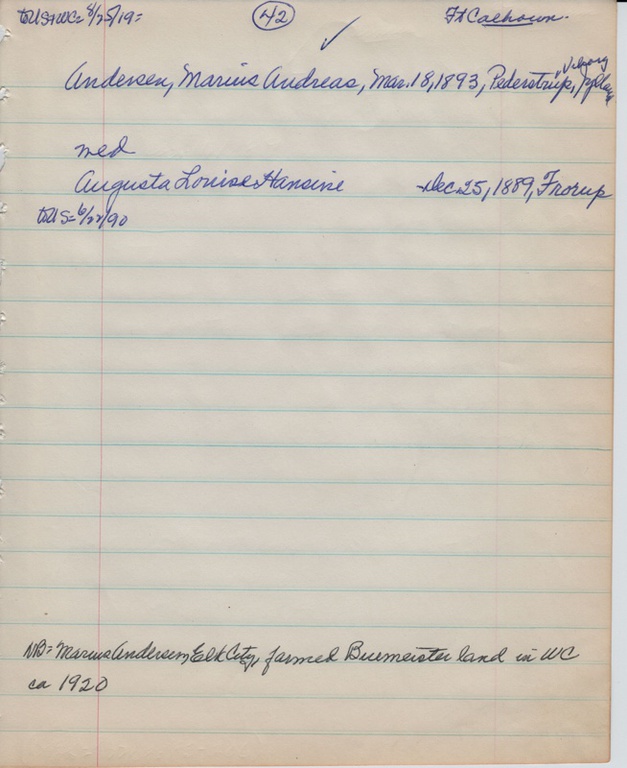 to US+WC= 8/25/19= 42 Ft Calhoun.
Andersen, Marius Andreas, Mar. 18, 1893, Pederstrup,
med
Augusta Louise Hansine Dec. 25, 1889, Frorup
to US= 6/22/90
NB= Marius Andersen, Elk City, farmed Buemeister land in WC
ca 1920